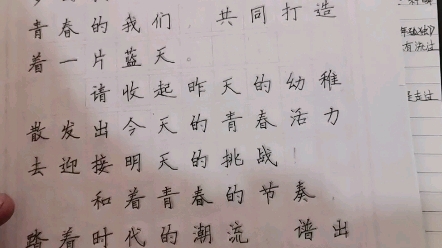 青春的我们 共同打造
着一片蓝天。
请收起昨天的幼稚
散发出今天的青春活力
去迎接明天的挑战！
和着青春的节奏
踏着时代的潮流 谱出
有流过
走过